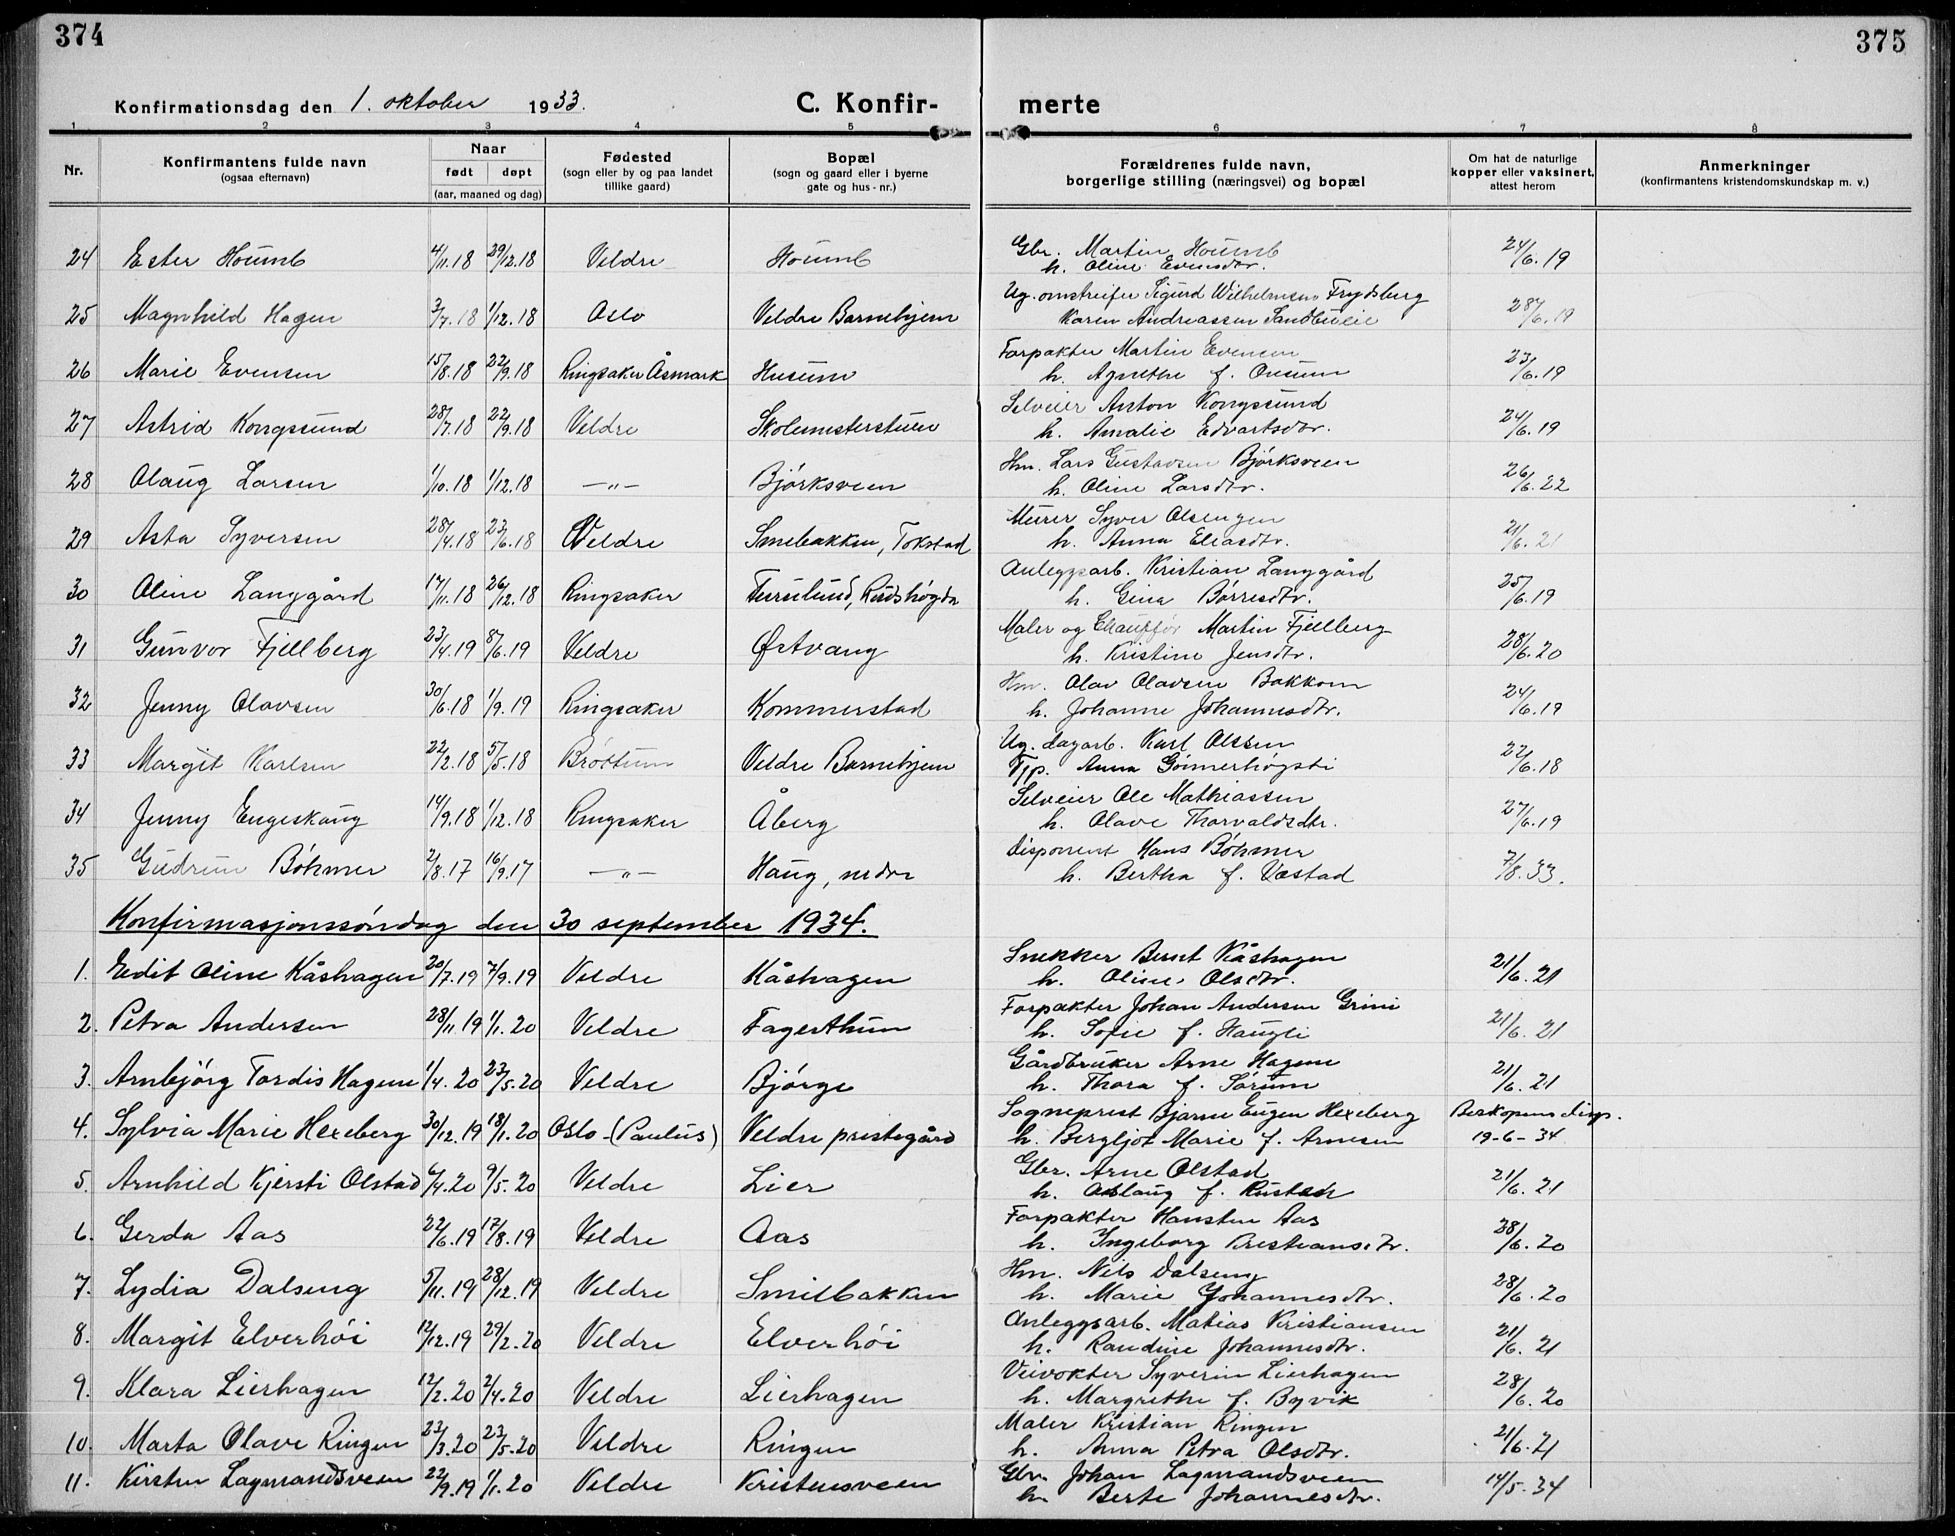 374
375
Konfirmationsdag den 1. oktober 1933.
C. Konfir- merte
1 2 3 4 5 6 7 8
Nr.
Konfirmantens fulde navn
(ogsaa efternavn)
Naar
født døpt
(aar, maaned og dag)
Fødested
(sogn eller by og paa landet
tillike gaard)
Bopæl
(sogn og gaard eller i byerne
gate og hus - nr.)
Forældrenes fulde navn,
borgerlige stilling (næringsvei) og bopæl
Om hat de naturlige
kopper eller vaksinert,
attest herom
Anmerkninger
(konfirmantens kristendomskundskap m. v.)
24 Ester Houmb 4/11.18 29/12.18 Veldre Houmb Gbr. Martin Houmb 24/6.19
h. Oline Evensdtr.
25 Magnhild Hagen 3/7.18 1/12.18 Oslo Veldre Barnehjem Ug. omstreifer Sigurd Wilhelmsen Frydsberg 28/6.19
Karen Andreassen
26 Marie Evensen 15/8.18 22/9.18 Ringsaker Åsmark Husum Forpakter Martin Evensen 23/6.19
h. Agnethe f. Onsum
27 Astrid Kongssund 28/7.18 22/9.18 Veldre Skolemesterstuen Selveier Anton Kongssund 24/6.19
h. Amalie Edvartsdtr.
28 Olaug Larsen 1/10.18 1/12.18 —"— Bjørksveen Hm. Lars Gustavsen Bjørksveen 26/6.22
h. Oline Larsdtr.
29 Asta Syversen 28/4.18 23/6.18 Veldre Smebakken, Tokstad Murer Syver Olsengen 21/6.21
h. Anna Eliasdtr.
30 Oline Langgård 17/11.18 26/12.18 Ringsaker Furulund, Rudshøgda Anleggsarb. Kristian Langgård 25/6.19
h. Gina Børresdtr.
31 Gunvor Fjellberg 23/4.19 8/6.19 Veldre Østvang Maler og Chauffør Martin Fjellberg 28/6.20
h. Kristine Jensdtr.
32 Jenny Olavsen 30/6.18 1/9.19 Ringsaker Kommerstad Hm. Olav Olavsen Bakkom 24/6.19
h. Johanne Johannesdtr.
33 Margit Karlsen 22/2.18 5/5.18 Brøttum Veldre Barnehjem Ug. dagarb. Karl Olssen 22/6.18
Tjp. Anna
34 Jenny Engeskaug 14/9.18 1/12.18 Ringsaker Åberg Selveier Ole Mathiassen 27/6.19
h. Olave Thorvaldsdtr.
35 Gudrun Bøhmer 2/8.17 16/9.17 —"— Haug, nedre Disponent Hans Bøhmer 7/8.33.
h. Bertha f. Væstad
Konfirmasjonssøndag den 30 september 1934.
1. Eedit Oline Kåshagen 20/7.19 7/9.19 Veldre Kåshagen Snekker Bernt Kåshagen 21/6.21
h. Oline Olsdtr.
2. Petra Andersen 28/11.19 1/1.20 Veldre Fagerthun Forpakter Johan Andersen Grini 21/6.21
h. Sofie f. Haugli
3. Arnbjørg Tordis Hagene 1/4.20 23/5.20 Veldre Bjørge Gårdbruker Arne Hagene 21/6.21
h. Thora f. Sørum
4. Sylvia Marie Hexeberg 30/12.19 18/1.20 Oslo-(Paulus) Veldre prestegård Sogneprest Bjarne Eugen Hexeberg Biskopens disp.
h. Bergljot Marie f. Arnesen 19-6-34
5. Arnhild Kjersti Olstad 6/4.20 9/5.20 Veldre Lier Gbr. Arne Olstad 21/6.21
h. Aslaug f. Rustad
6. Gerda Aas 22/6.19 17/8.19 Veldre Aas Forpakter Hansten Aas 28/6.20
h. Ingeborg Kristiansdtr.
7. Lydia Dalseng 5/11.19 28/12.19 Veldre Smilbakken Hm. Nils Dalseng 28/6.20
h. Marie Johannesdtr.
8. Margit Elverhøi 12/12.19 29/2.20 Veldre Elverhøi Anleggsarb. Matias Kristiansen 21/6.21
h. Randine Johannesdtr.
9. Klara Lierhagen 12/2.20 2/4.20 Veldre Lierhagen Veivokter Syverin Lierhagen 28/6.20
h. Margrethe f. Byvik
10. Marta Olave Ringen 23/3.20 23/5.20 Veldre Ringen Maler Kristian Ringen 21/6.21
h. Anna Petra Olsdtr.
11. Kirsten Lagmandsveen 22/9.19 1/1.20 Veldre Kristensveen Gbr. Johan Lagmandsveen 14/5.34
h. Berte Johannesdtr.